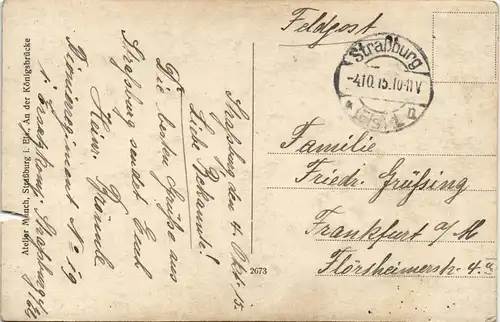 Feldpost
Straßburg
-4.10.15.10-11V
* (Els.) 1 n
Familie
Friedr. Grüfsing
Frankfurt a/M
Flörsheimerstr. 4 a
Straßburg den 4. Okt. 15.
Liebe Bekannte!
Die besten Grüße aus
Straßburg sendet Euch
Heinr.
Pionierregiment No 19
1. Ersatzkomp. Straßburg i/Els
2673
Atelier Münch, Straßburg i. Els., An der Königsbrücke